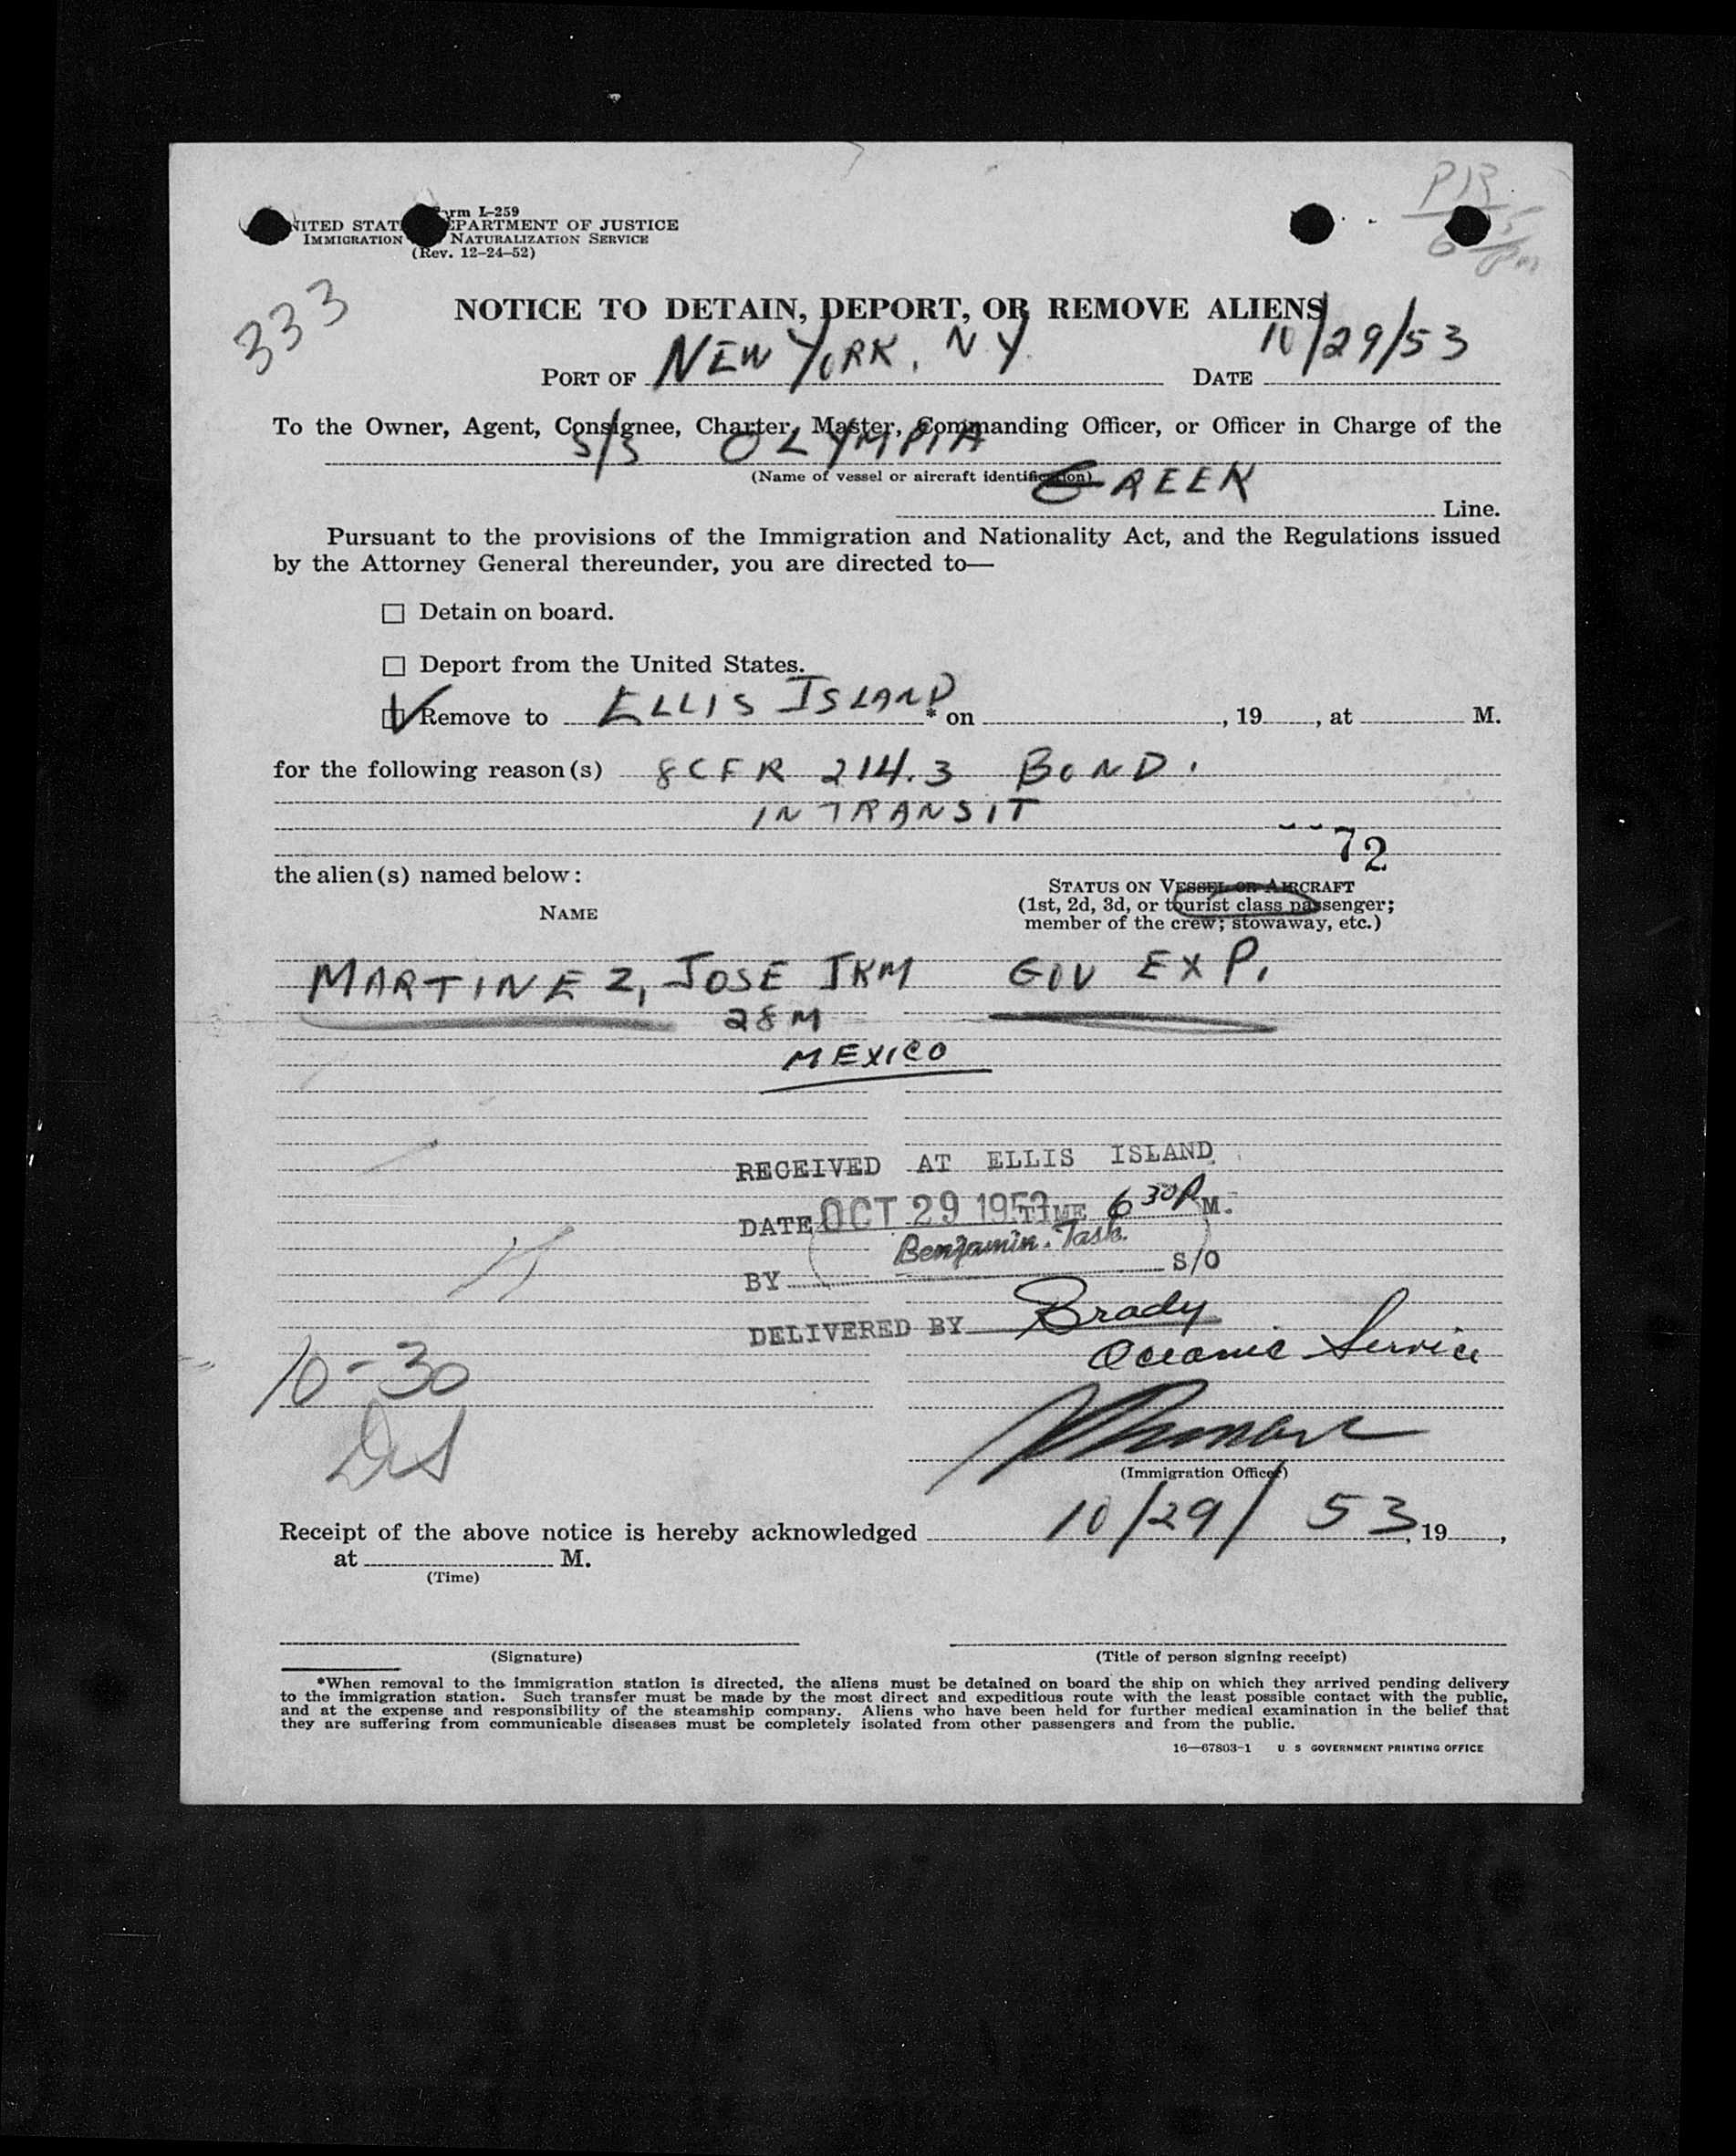 Form I-259
UNITED STATES DEPARTMENT OF JUSTICE
IMMIGRATION NATURALIZATION SERVICE
(Rev. 12-24-52)
333
NOTICE TO DETAIN, DEPORT, OR REMOVE ALIENS
PORT OF NEW YORK, NY. DATE 10/29/53
To the Owner, Agent, Consignee, Charter, Master, Commanding Officer, or Officer in Charge of the
S/S OLYMPIA
(Name of vessel or aircraft identification)
GREEK Line.
Pursuant to the provisions of the Immigration and Nationality Act, and the Regulations issued
by the Attorney General thereunder, you are directed to—
Detain on board.
Deport from the United States.
Remove to ELLIS ISLAND * on , 19 , at M.
for the following reason(s) 8 CFR 214.3 BOND.
IN TRANSIT
72
the alien(s) named below:
STATUS ON VESSEL OR AIRCRAFT
(1st, 2d, 3d, or tourist class passenger;
member of the crew; stowaway, etc.)
NAME
MARTINEZ, JOSE JKM GOV EXP.
28M
MEXICO
RECEIVED AT ELLIS ISLAND
DATE OCT 29 1953 TIME 6 30 P M.
Benjamin. Task.
BY S/O
DELIVERED BY Brady
Oceanic Service
10-30
(Immigration Officer)
Receipt of the above notice is hereby acknowledged 10/29/53, 19 ,
at M.
(Time)
(Signature) (Title of person signing receipt)
*When removal to the immigration station is directed, the aliens must be detained on board the ship on which they arrived pending delivery
to the immigration station. Such transfer must be made by the most direct and expeditious route with the least possible contact with the public,
and at the expense and responsibility of the steamship company. Aliens who have been held for further medical examination in the belief that
they are suffering from communicable diseases must be completely isolated from other passengers and from the public.
16—67803-1 U. S GOVERNMENT PRINTING OFFICE